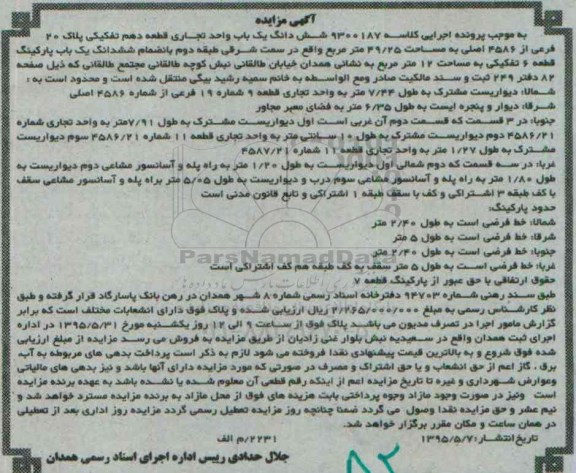 آگهی مزایده
به موجب پرونده اجرایی کلاسه ۹۳۰۰۱۸۷ شش دانگ یک باب واحد تجاری قطعه دهم تفکیکی پلاک ۲۰
فرعی از ۴۵۸۶ اصلی به مساحت ۴۹/۲۵ متر مربع واقع در سمت شرقی طبقه دوم بانضمام ششدانگ یک باب پارکینگ
قطعه ۶ تفکیکی به مساحت ۱۲ متر مربع به نشانی همدان خیابان طالقانی نبش کوچه طالقانی مجتمع طالقانی که ذیل صفحه
۸۲ دفتر ۲۴۹ ثبت و سند مالکیت صادر ومع الواسطه به خانم سمیه رشید بیگی منتقل شده است و محدود است به :
شمالا: دیواریست مشترک به طول ۷/۴۴ متر به واحد تجاری قطعه ۹ شماره ۱۹ فرعی از شماره ۴۵۸۶ اصلی
شرقا: دیوار و پنجره ایست به طول ۶/۳۵ متر به فضای معبر مجاور
جنوبا: در ۳ قسمت که قسمت دوم آن غربی است اول دیواریست مشترک به طول ۷/۹۱متر به واحد تجاری شماره
۴۵۸۶/۲۱ دوم دیواریست مشترک به طول ۱۰ سانتی متر به واحد تجاری قطعه ۱۱ شماره ۴۵۸۶/۲۱ سوم دیواریست
مشترک به طول ۱/۲۷ متر به واحد تجاری قطعه ۱۱ شماره ۴۵۸۷/۲۱
غربا: در سه قسمت که دوم شمالی اول دیواریست به طول ۱/۲۰ متر به راه پله و آسانسور مشاعی دوم دیواریست به
طول ۱/۸۰ متر به راه پله و آسانسور مشاعی سوم درب و دیواریست به طول ۵/۰۵ متر براه پله و آسانسور مشاعی سقف
با کف طبقه ۳ اشتراکی و کف با سقف طبقه ۱ اشتراکی و تابع قانون مدنی است
حدود پارکینگ:
شمالا: خط فرضی است به طول ۲/۴۰ متر
شرقا: خط فرضی است به طول ۵ متر
جنوبا: خط فرضی است به طول ۲/۴۰ متر
غربا: خط فرضی است به طول ۵ متر سقف به کف طبقه هم کف اشتراکی است
حقوق ارتفاقی با حق عبور از پارکینگ قطعه ۷
طبق سند رهنی شماره ۹۴۷۰۳ دفترخانه اسناد رسمی شماره ۸ شهر همدان در رهن بانک پاسارگاد قرار گرفته و طبق
نظر کارشناس رسمی به مبلغ ۲/۲۶۵/۰۰۰/۰۰۰ ریال ارزیابی شده و پلاک فوق دارای انشعابات مختلف است که برابر
گزارش مامور اجرا در تصرف مدیون می باشد. پلاک فوق از ساعت ۹ الی ۱۲ روز یکشنبه مورخ ۱۳۹۵/۵/۳۱ در اداره
اجرای ثبت همدان واقع در سعیدیه نبش بلوار غنی زادیان از طریق مزایده به فروش می رسد مزایده از مبلغ ارزیابی
شده فوق شروع و به بالاترین قیمت پیشنهادی نقدا فروخته می شود لازم به ذکر است پرداخت بدهی های مربوطه به آب،
برق ، گاز اعم از حق انشعاب و یا حق اشتراک و مصرف در صورتی که مورد مزایده دارای آنها باشد و نیز بدهی های مالیاتی
وعوارض شهرداری و غیره تا تاریخ مزایده اعم از اینکه رقم قطعی آن معلوم شده یا نشده باشد به عهده برنده مزایده
است ونیز در صورت وجود مازاد وجوه پرداختی بابت هزینه های فوق از محل مازاد به برنده مزایده مسترد خواهد شد و
نیم عشر و حق مزایده نقدا وصول می گردد ضمنا چنانچه روز مزایده تعطیل رسمی گردد مزایده روز اداری بعد از تعطیلی
در همان ساعت و مکان مقرر برگزار خواهد شد.
تاریخ انتشار:۱۳۹۵/۵/۷ ۲۲۳۱/م الف
جلال حدادی رییس اداره اجرای اسناد رسمی همدان
ParsNamadData